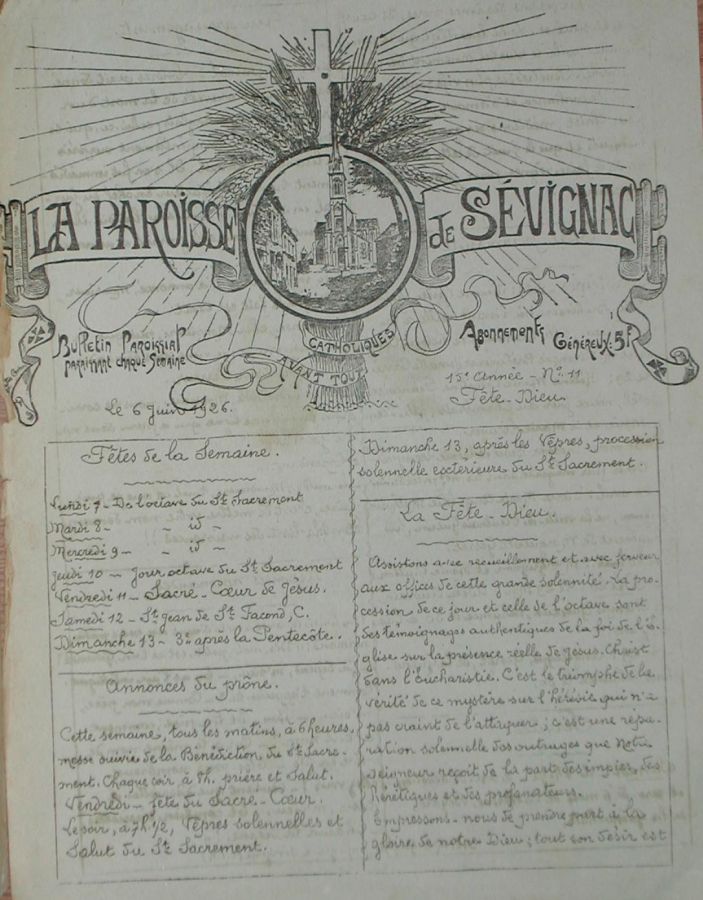 LA PAROISSE de SÉVIGNAC
Bulletin Paroissial
paraissant chaque Semaine
CATHOLIQUES
AVANT TOUT
Abonnements
Généreux: 5F
Le 6 Juin 1926.
15e Année - No. 11
Fête-Dieu
Fêtes de la Semaine.
Lundi 7 - De l'octave du St Sacrement
Mardi 8 - - id -
Mercredi 9 - - id -
Jeudi 10 - Jour octave du St Sacrement
Vendredi 11 - Sacré-Cœur de Jésus.
Samedi 12 - St Jean de St Facond, C.
Dimanche 13 - 3e après la Pentecôte.
Annonces du prône.
Cette semaine, tous les matins, à 6 heures,
messe suivie de la Bénédiction du St Sacre-
ment. Chaque soir à 8h. prière et Salut.
Vendredi - fête du Sacré-Cœur.
Le soir, à 7h ½, Vêpres solennelles et
Salut du St Sacrement.
Dimanche 13, après les Vêpres, procession
solennelle extérieure du St Sacrement.
La Fête-Dieu.
Assistons avec recueillement et avec ferveur
aux offices de cette grande solennité. La pro-
cession de ce jour et celle de l'octave sont
des témoignages authentiques de la foi de l'é-
glise sur la présence réelle de Jésus-Christ
dans l'Eucharistie. C'est le triomphe de la
vérité de ce mystère sur l'hérésie qui n'a
pas craint de l'attaquer; c'est une répa-
ration solennelle des outrages que Notre
Seigneur reçoit de la part des impies, des
hérétiques et des profanateurs.
Empressons-nous de prendre part à la
gloire de notre Dieu; tout son désir est